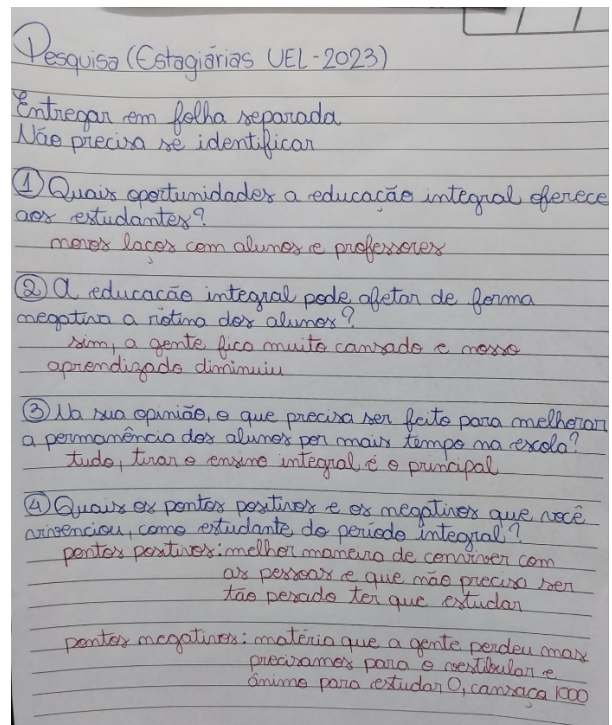 Pesquisa (Estagiárias UEL - 2023)
Entregar em folha separada
Não precisa se identificar
① Quais oportunidades a educação integral oferece
aos estudantes?
novos laços com alunos e professores
② A educação integral pode afetar de forma
negativa a rotina dos alunos?
sim, a gente fica muito cansado e nosso
aprendizado diminuiu
③ Na sua opinião, o que precisa ser feito para melhorar
a permanência dos alunos por mais tempo na escola?
tudo, tirar o ensino integral é o principal
④ Quais os pontos positivos e os negativos que você
vivenciou, como estudante do período integral?
pontos postivos: melhor maneira de conviver com
as pessoas e que não precisa ser
tão pesado ter que estudar
pontos negativos: matéria que a gente perdeu mas
precisamos para o vestibular e
ânimo para estudar 0, cansaça 1000